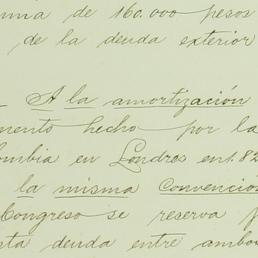 suma de 160.000 pesos
de la deuda exterior
A la amortización
hecho por la
en Londres en 1.82
la misma Convención
Congreso se reserva
deuda entre